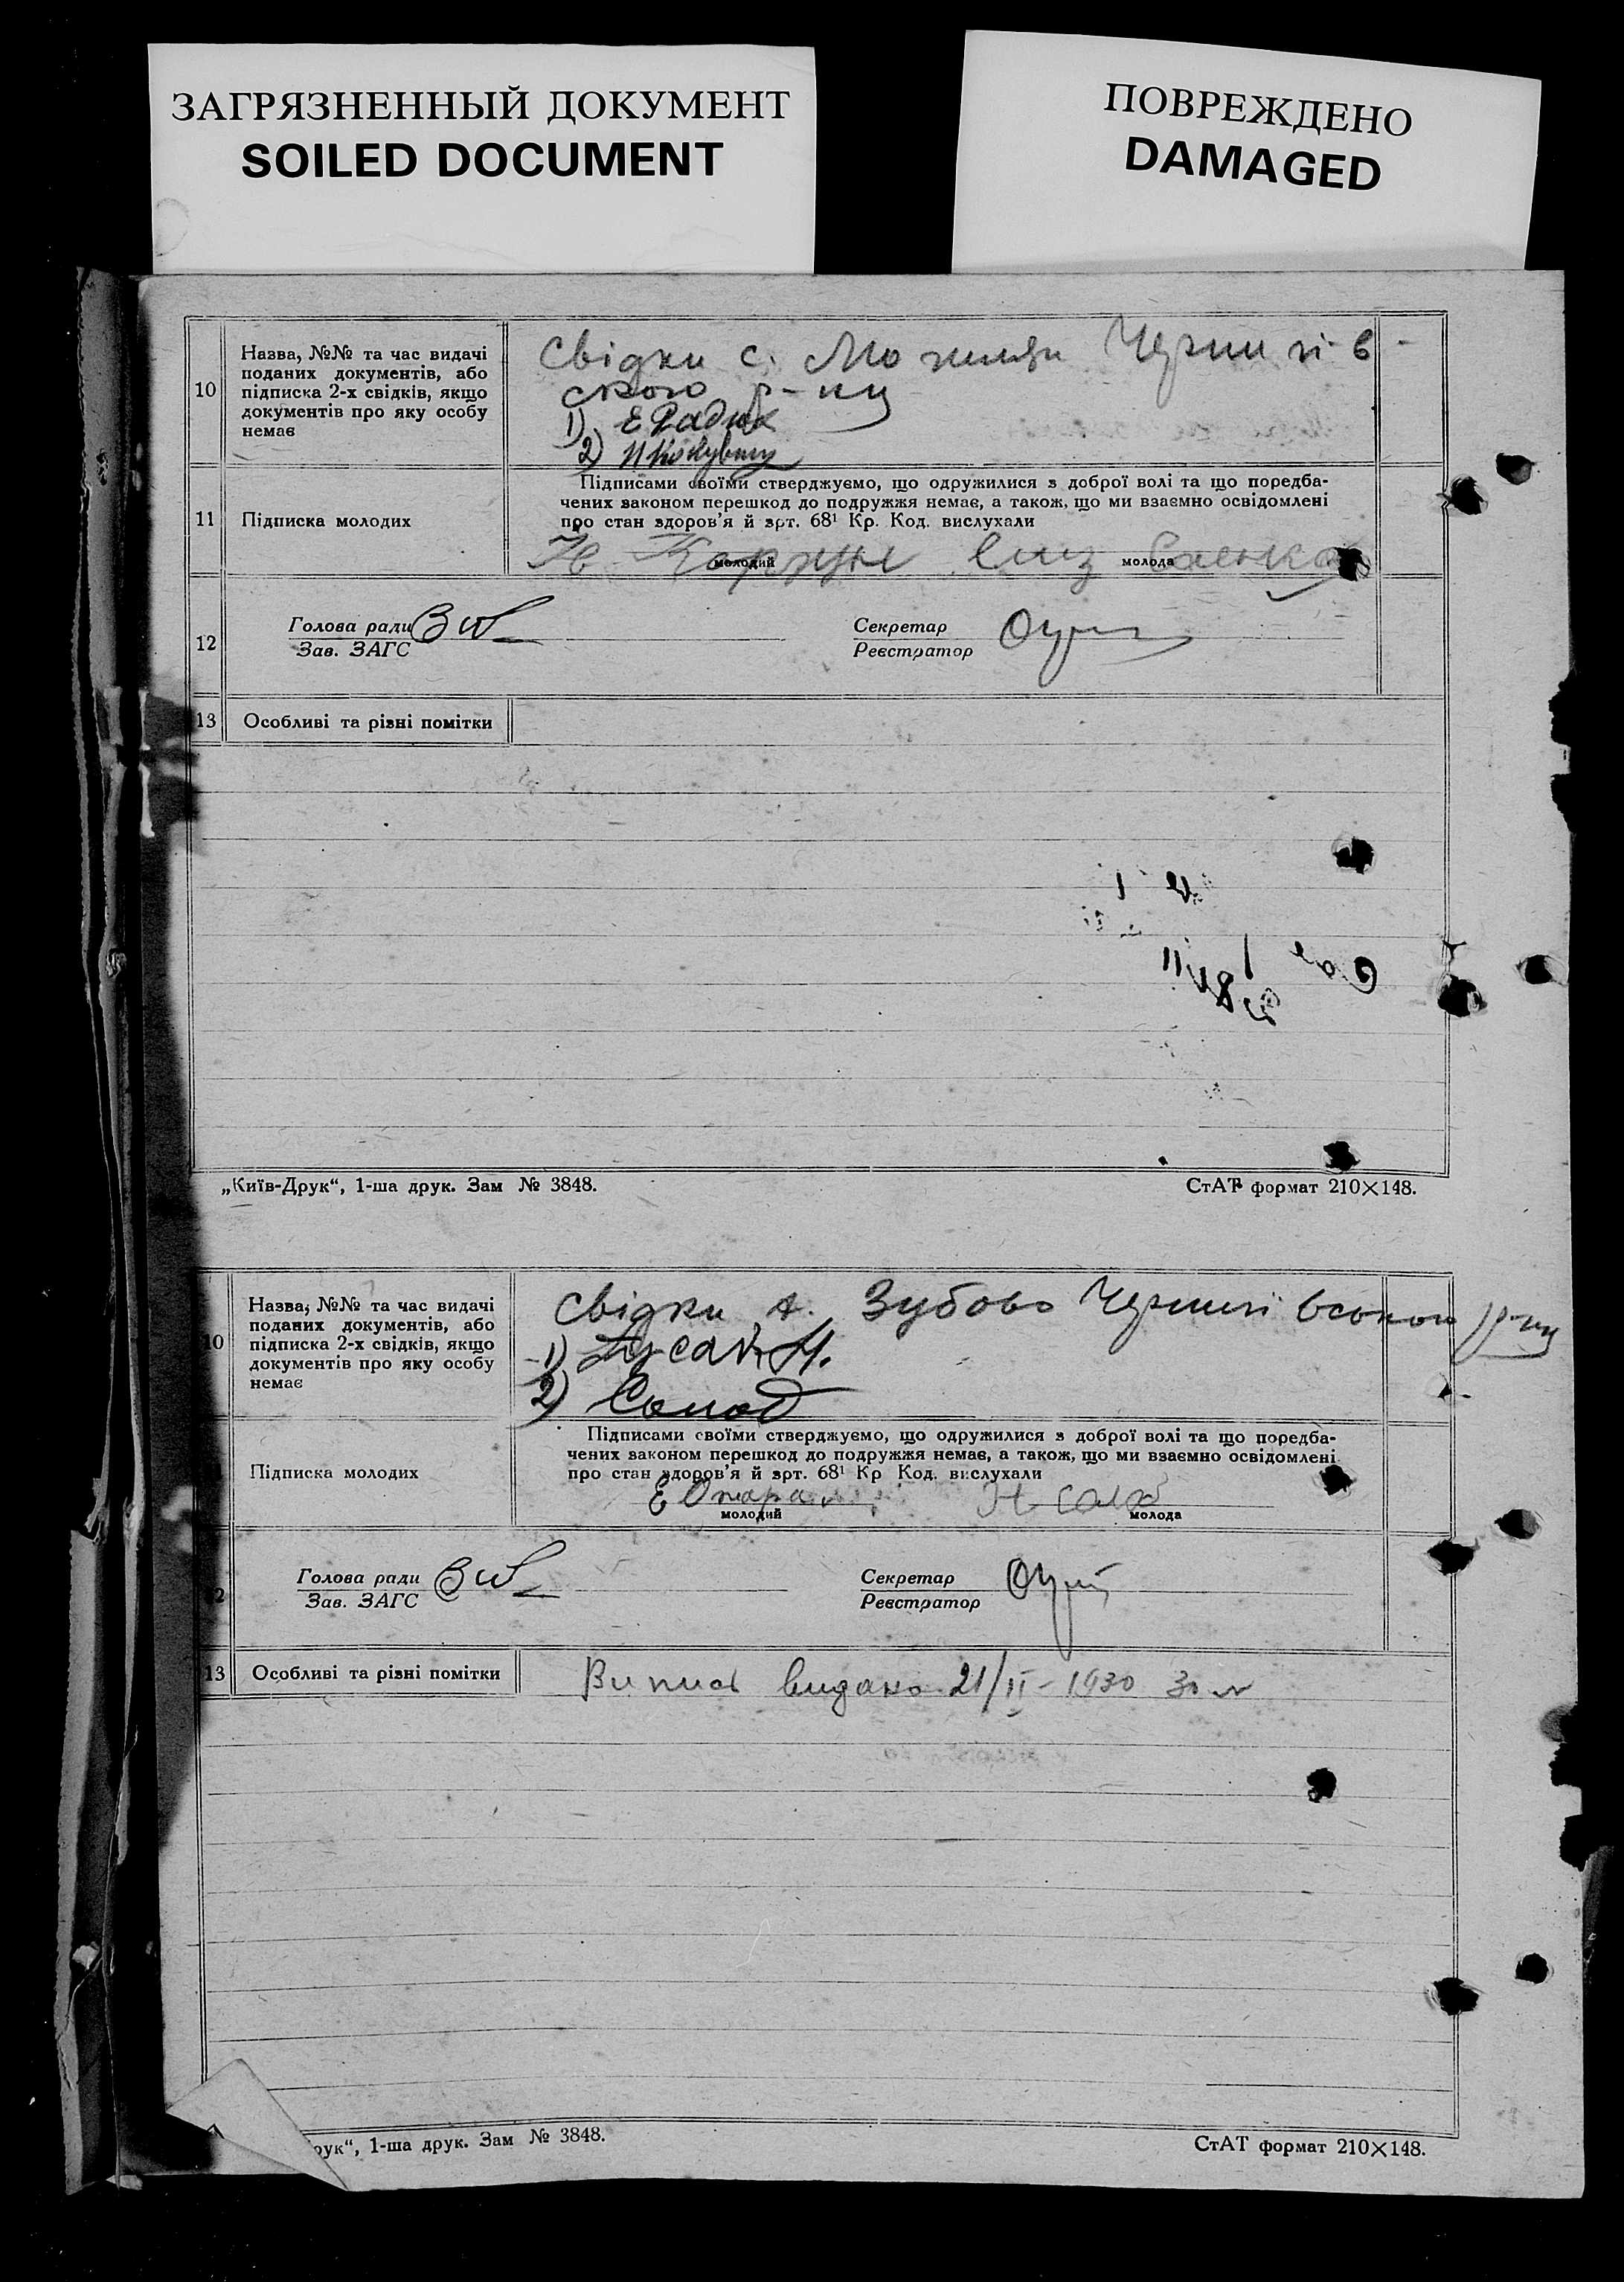 ЗАГРЯЗНЕННЫЙ ДОКУМЕНТ
SOILED DOCUMENT
ПОВРЕЖДЕНО
DAMAGED
10
Назва, №№ та час видачі
поданих документів, або
підписка 2-х свідків, якщо
документів про яку особу
немає
Свідки с. Чернигів-
ського р-ну
1) Е Радик
2)
11
Підписка молодих
Підписами своїми стверджуємо, що одружилися з доброї волі та що поредба-
чених законом перешкод до подружжя немає, а також, що ми взаємно освідомлені
про стан здоров'я й арт. 68¹ Кр. Код. вислухали
молодий
молода
12
Голова ради
Зав. ЗАГС
Секретар
Реєстратор
13
Особливі та різні помітки
„Київ-Друк“, 1-ша друк. Зам № 3848.
СтАТ формат 210×148.
10
Назва, №№ та час видачі
поданих документів, або
підписка 2-х свідків, якщо
документів про яку особу
немає
Свідки Зубово Чернигівського р-ну
1)
2) Солод
Підписка молодих
Підписами своїми стверджуємо, що одружилися з доброї волі та що поредба-
чених законом перешкод до подружжя немає, а також, що ми взаємно освідомлені
про стан здоров'я й арт. 68¹ Кр Код. вислухали
молодий
молода
2
Голова ради
Зав. ЗАГС
Секретар
Реєстратор
13
Особливі та різні помітки
Випис видано 21/II-1930
рук“, 1-ша друк. Зам № 3848.
СтАТ формат 210×148.